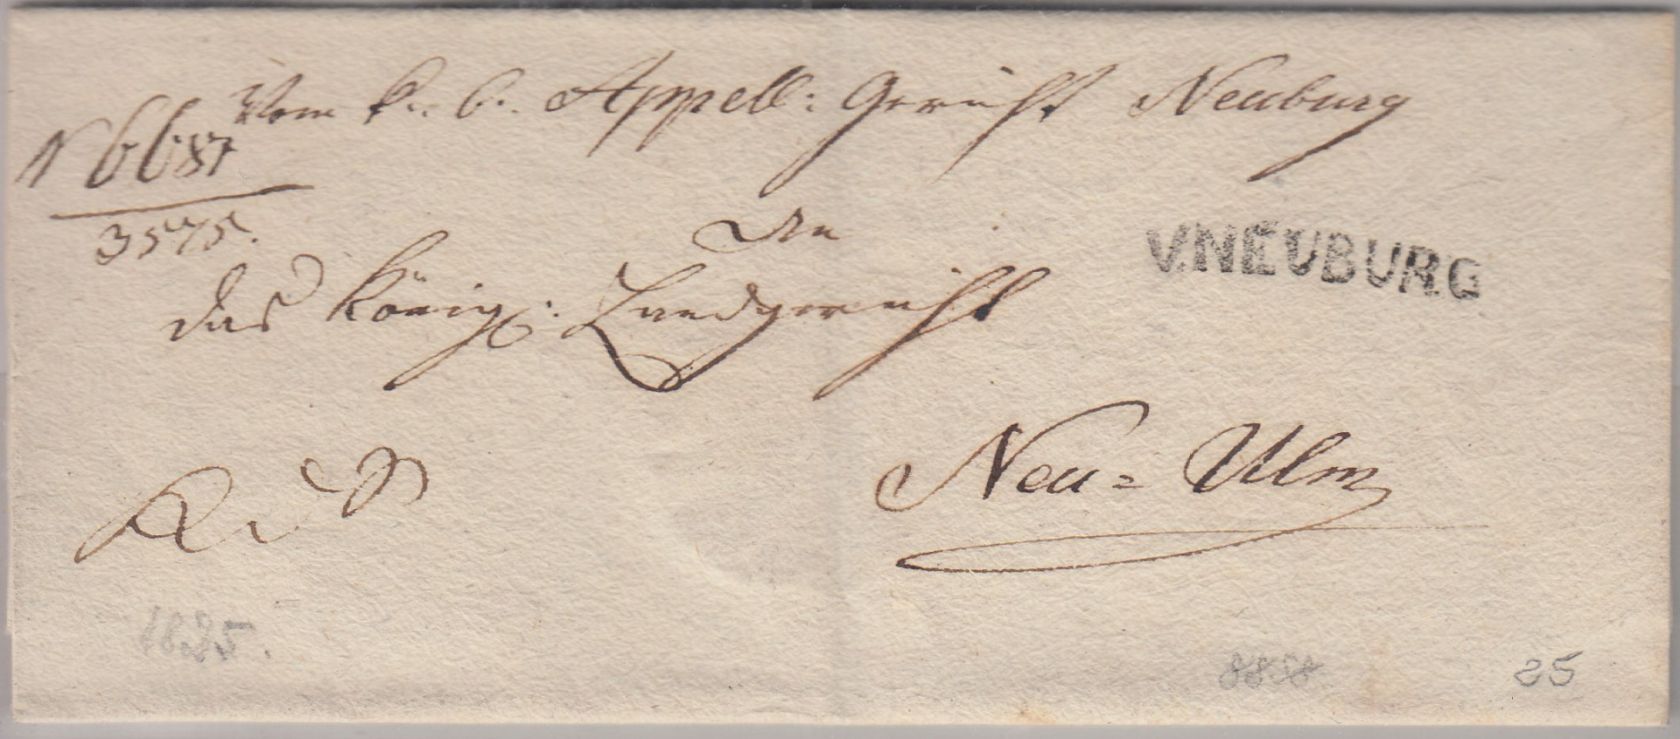 Vom k. b. Appell: Gericht Neuburg
N 6687
3575.
An
V.NEUBURG
das Königl: Landgericht
Neu=Ulm
R d S
1825.
25